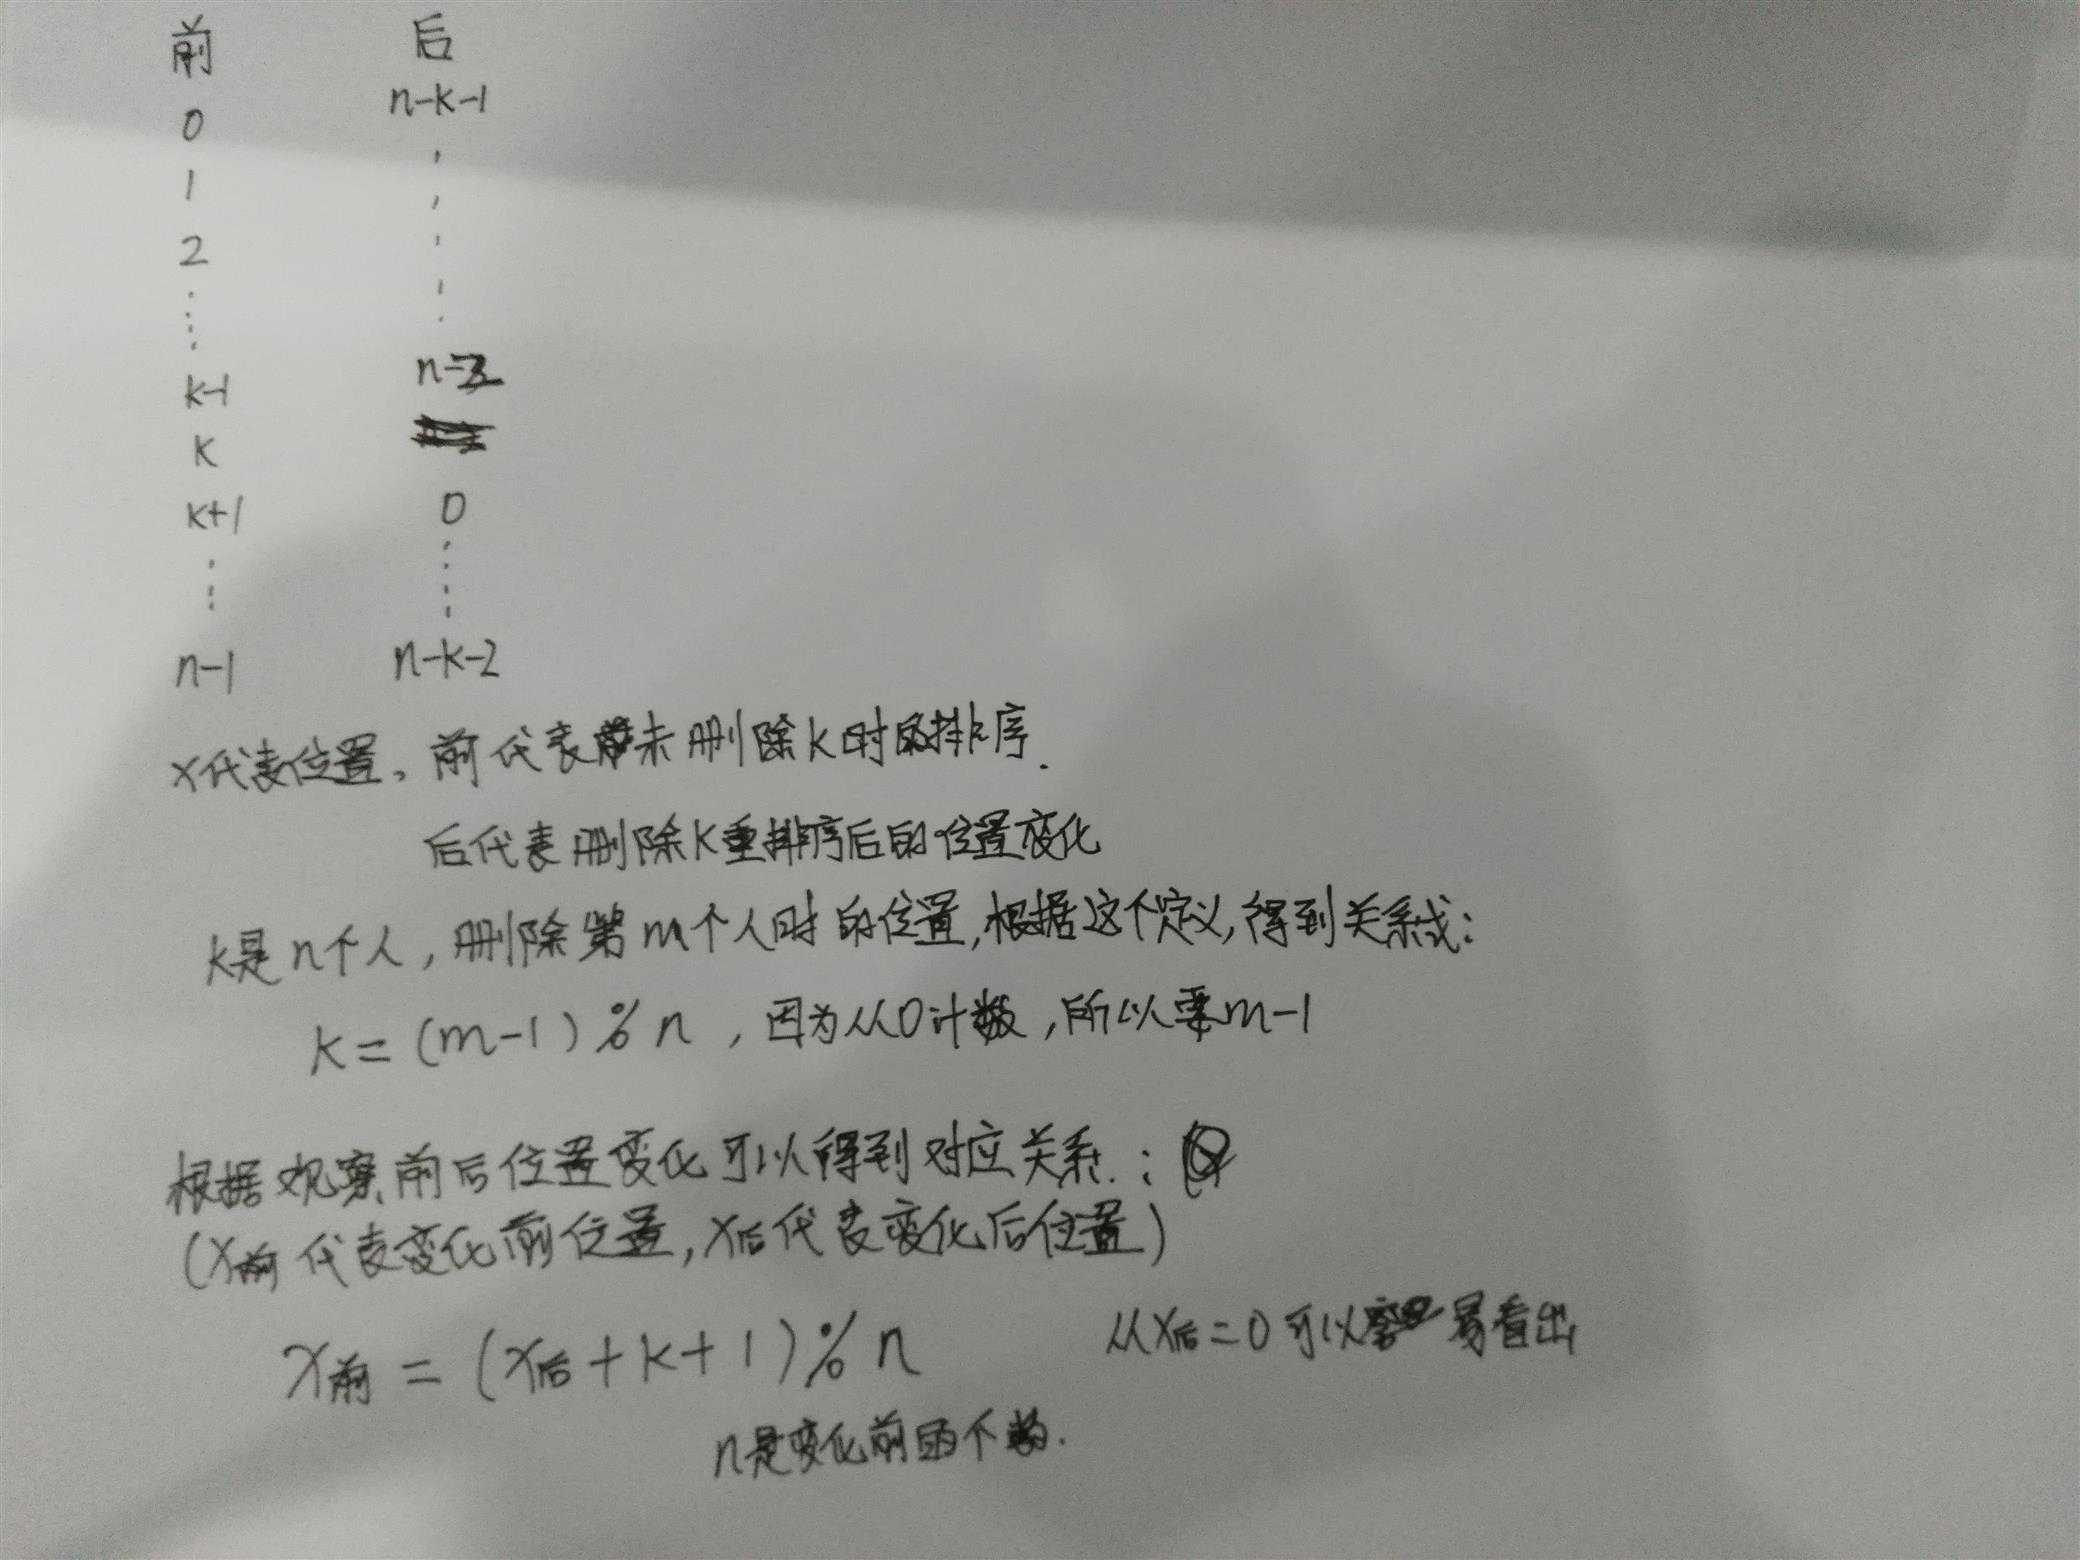 前 后
0 n-k-1
1
2
⋮
k-1 n-2
k
k+1 0
⋮ ⋮
n-1 n-k-2
x代表位置。前代表未删除k时的排序.
后代表删除k重排序后的位置变化
k是n个人，删除第m个人时的位置,根据这个定义,得到关系式:
k=(m-1)%n，因为从0计数,所以要m-1
根据观察前后位置变化可以得到对应关系.:
(x前代表变化前位置,x后代表变化后位置)
x前=(x后+k+1)%n 从x后=0可以容易看出
n是变化前的个数.